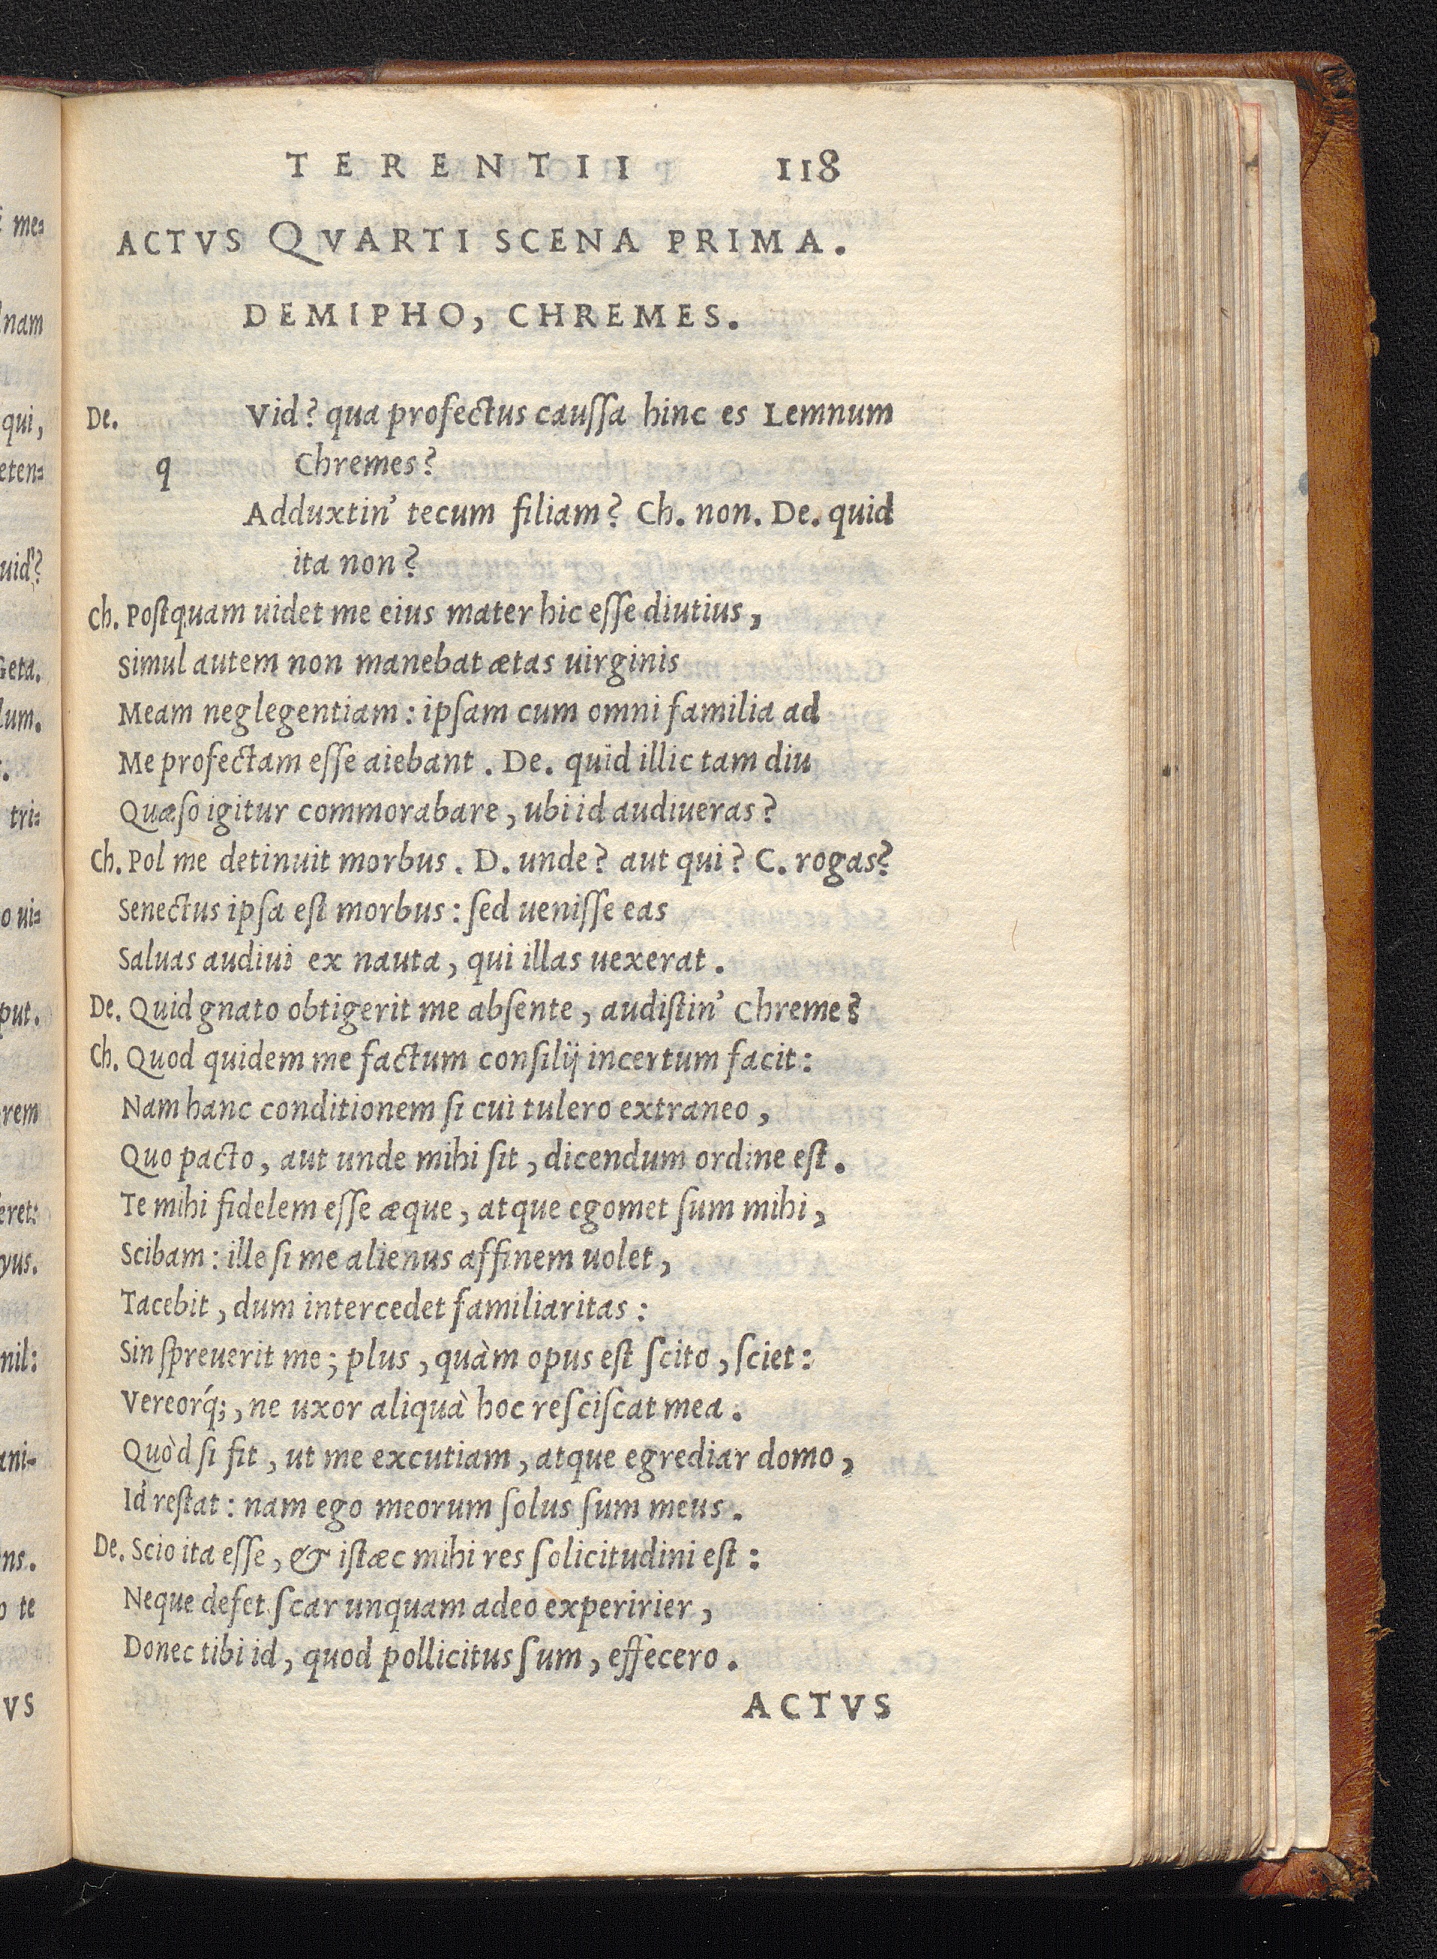 TERENTII 118
ACTVS QVARTI SCENA PRIMA.
DEMIPHO, CHREMES.
De. Vid? qua profectus caussa hinc es Lemnum
q Chremes?
Adduxtin' tecum filiam? Ch. non. De. quid
ita non?
Ch. Postquam uidet me eius mater hic esse diutius,
Simul autem non manebat ætas uirginis
Meam neglegentiam: ipsam cum omni familia ad
Me profectam esse aiebant. De. quid illic tam diu
Quæso igitur commorabare, ubi id audiueras?
Ch. Pol me detinuit morbus. D. unde? aut qui? C. rogas?
Senectus ipsa est morbus: sed uenisse eas
Saluas audiui ex nauta, qui illas uexerat.
De. Quid gnato obtigerit me absente, audistin' Chreme?
Ch. Quod quidem me factum consilij incertum facit:
Nam hanc conditionem si cui tulero extraneo,
Quo pacto, aut unde mihi sit, dicendum ordine est.
Te mihi fidelem esse æque, atque egomet sum mihi,
Scibam: ille si me alienus affinem uolet,
Tacebit, dum intercedet familiaritas:
Sin spreuerit me; plus, quàm opus est scito, sciet:
Vereorq́;, ne uxor aliquà hoc resciscat mea.
Quòd si fit, ut me excutiam, atque egrediar domo,
Id restat: nam ego meorum solus sum meus.
De. Scio ita esse, & istæc mihi res solicitudini est:
Neque defetscar unquam adeo experirier,
Donec tibi id, quod pollicitus sum, effecero.
ACTVS